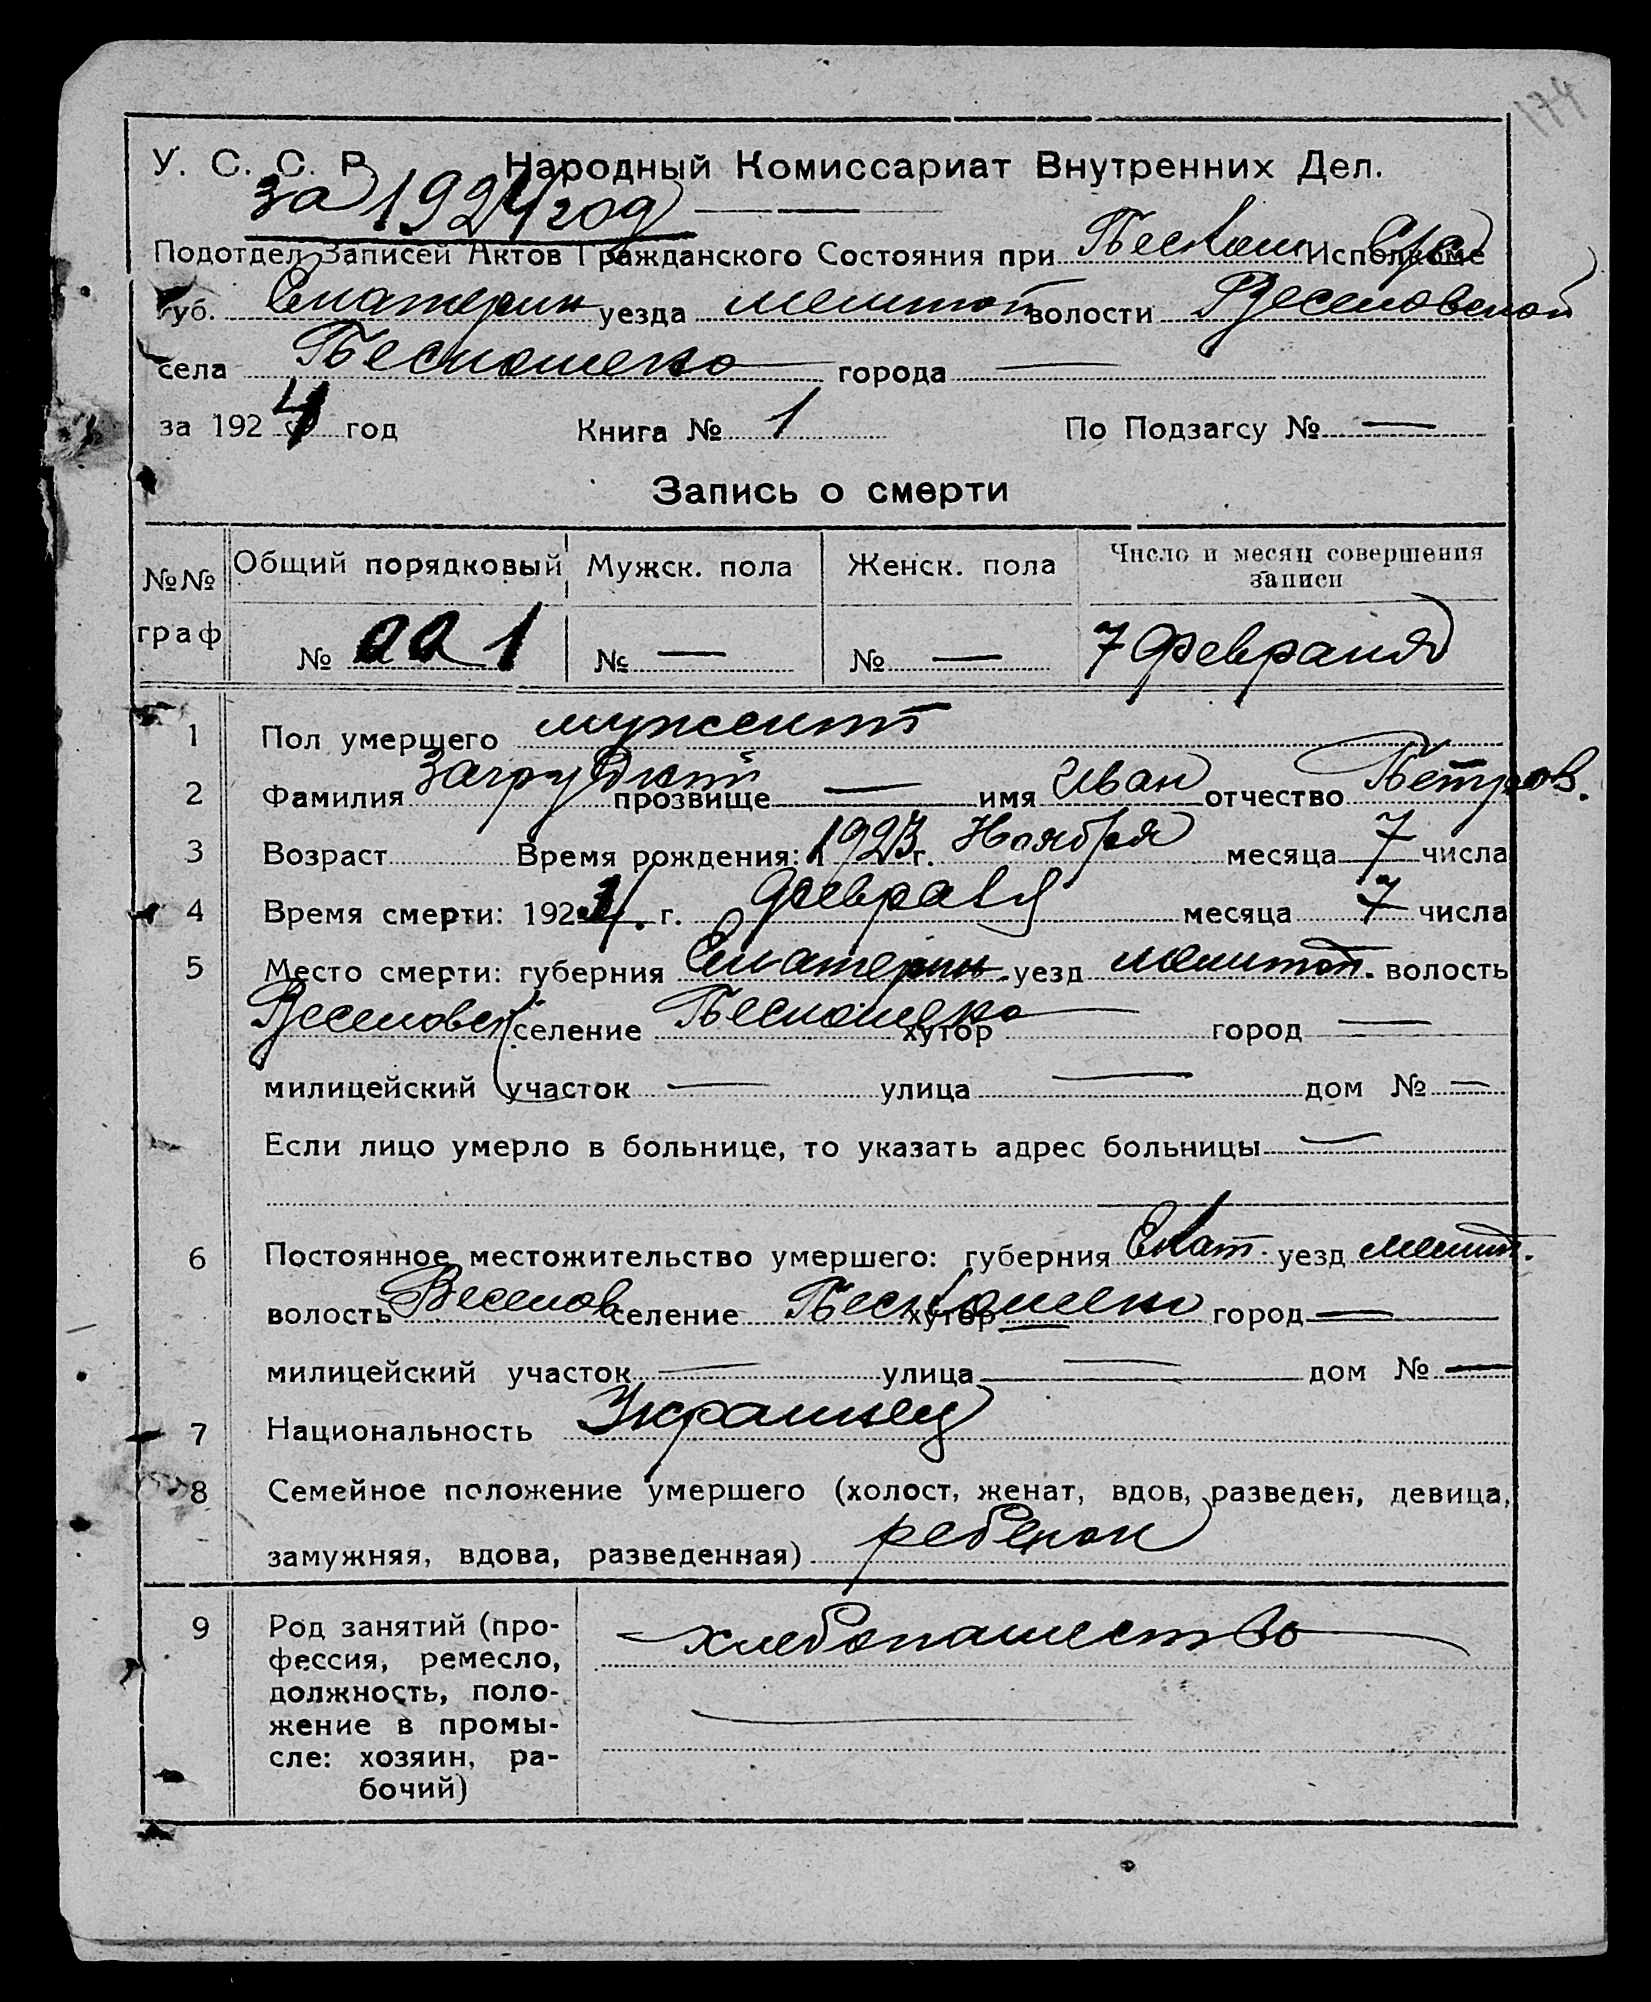 174
У. С. С. Р. Народный Комиссариат Внутренних Дел.
за 1924 год
Подотдел Записей Актов Гражданского Состояния при Исполкоме
Губ. Екатерин уезда Мелитоп волости Веселовской
села города —
за 1924 год Книга № 1 По Подзагсу № —
Запись о смерти
№№ граф Общий порядковый Мужск. пола Женск. пола Число и месяц совершения записи
№ 1 № — № — 7 февраля
1 Пол умершего мужской
2 Фамилия прозвище — имя Иван отчество Петров.
3 Возраст Время рождения: 1923 г. Ноября месяца 7 числа
4 Время смерти: 1924 г. февраля месяца 7 числа
5 Место смерти: губерния Екатерин. уезд Мелитоп. волость
Веселовск селение хутор город —
милицейский участок — улица — дом № —
Если лицо умерло в больнице, то указать адрес больницы —
6 Постоянное местожительство умершего: губерния Екат. уезд Мелит.
волость Веселов селение хутор — город —
милицейский участок — улица — дом № —
7 Национальность Украинец
8 Семейное положение умершего (холост, женат, вдов, разведен, девица,
замужняя, вдова, разведенная) ребенок
9 Род занятий (про-
фессия, ремесло,
должность, поло-
жение в промы-
сле: хозяин, ра-
бочий)
хлебопашество